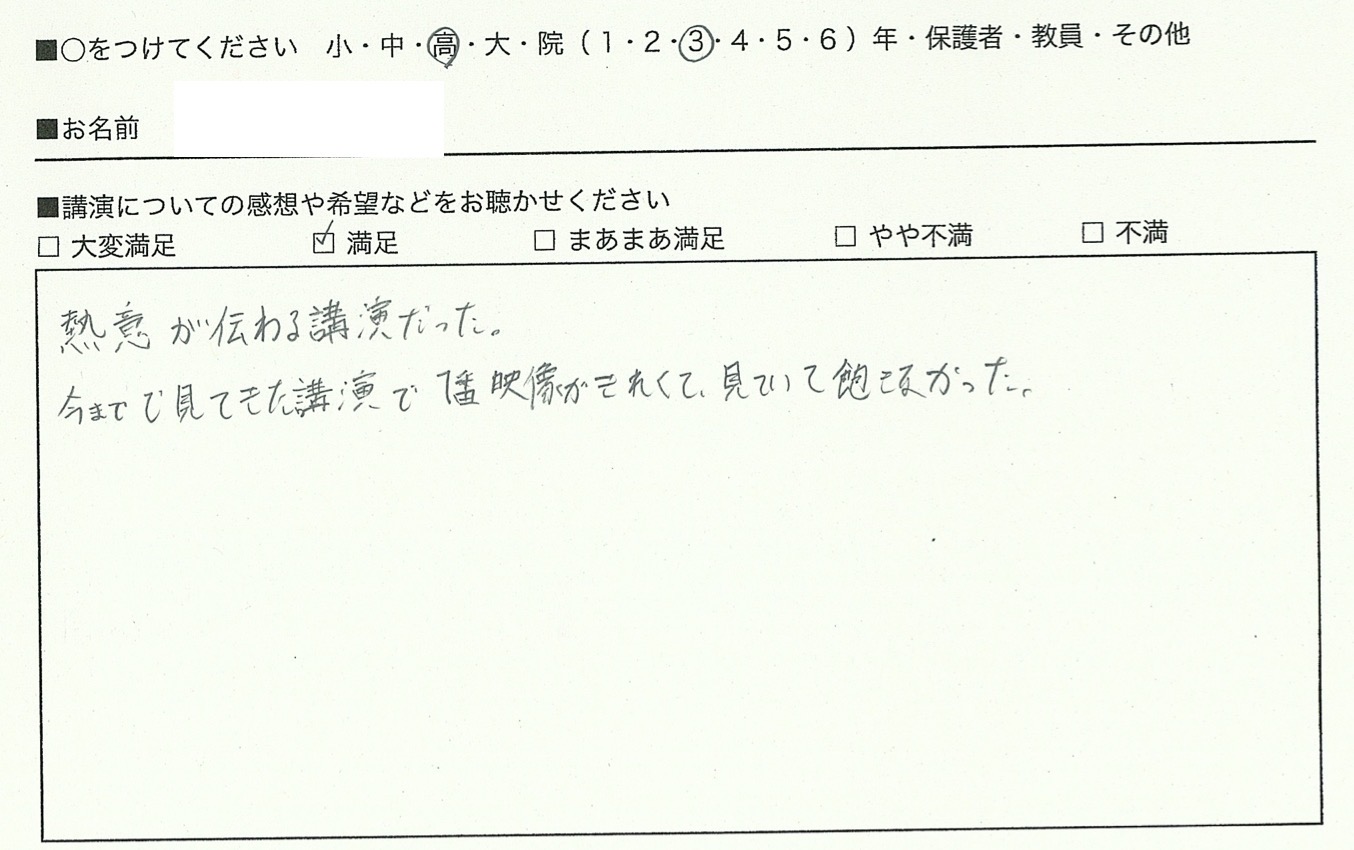 ■○をつけてください 小・中・高・大・院（1・2・3・4・5・6）年・保護者・教員・その他
■お名前
■講演についての感想や希望などをお聴かせください
□ 大変満足 ☑ 満足 □ まあまあ満足 □ やや不満 □ 不満
熱意が伝わる講演だった。
今までで見てきた講演で1番映像がきれくて、見ていて飽きなかった。